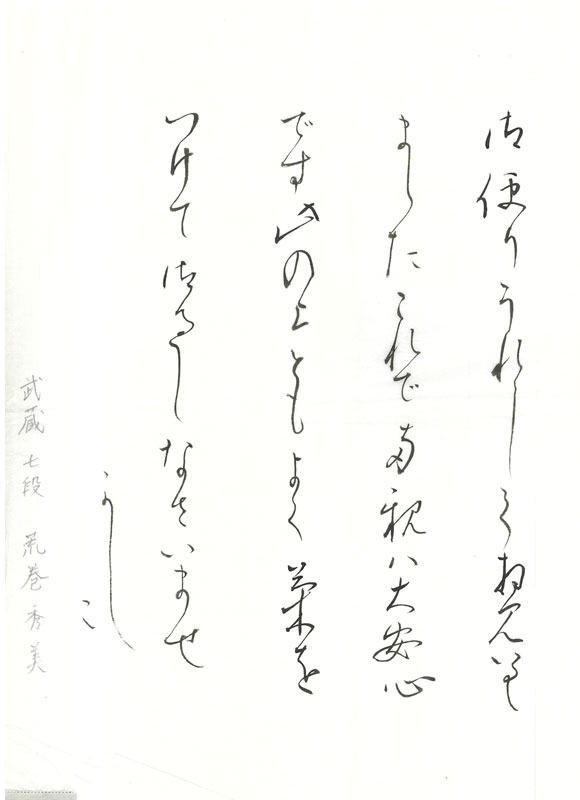 御便りうれしく拝見いたし
ましたこれで両親ハ大安心
です此の上ともよく氣を
つけて御くらしなさいませ
かしこ
武蔵 七段 荒巻秀美